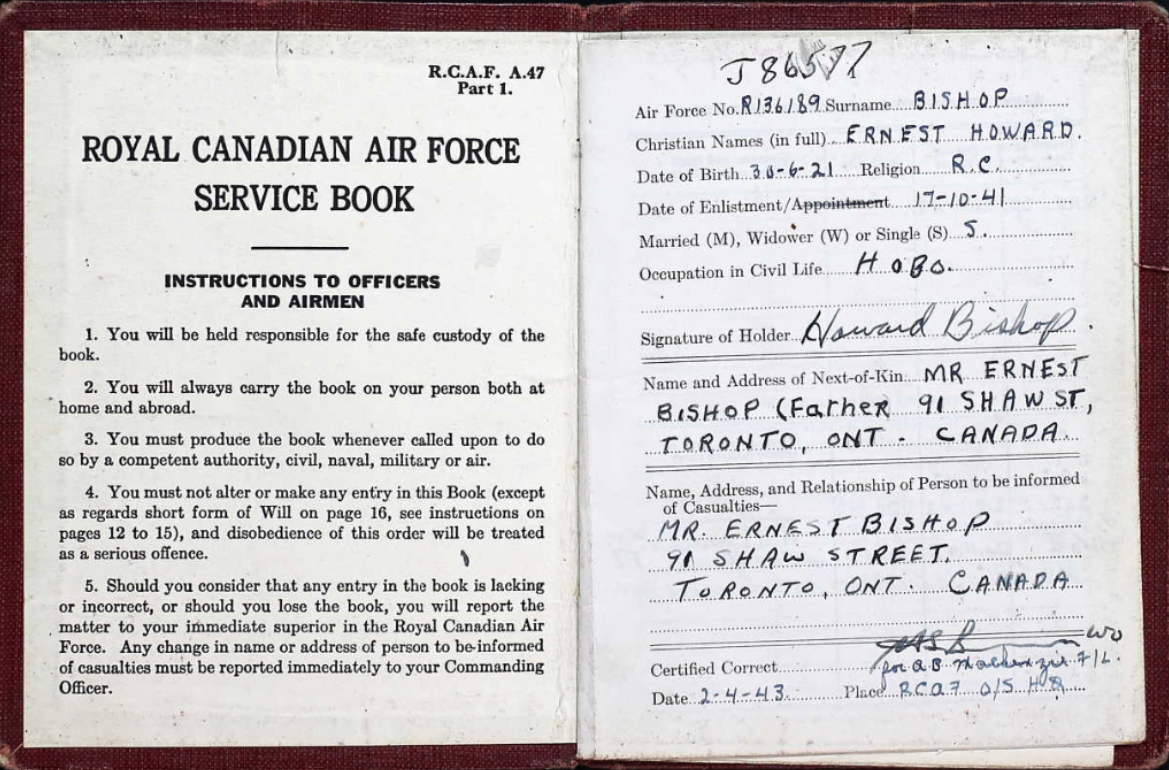 R.C.A.F. A.47
Part 1.
ROYAL CANADIAN AIR FORCE
SERVICE BOOK
INSTRUCTIONS TO OFFICERS
AND AIRMEN
1. You will be held responsible for the safe custody of the
book.
2. You will always carry the book on your person both at
home and abroad.
3. You must produce the book whenever called upon to do
so by a competent authority, civil, naval, military or air.
4. You must not alter or make any entry in this Book (except
as regards short form of Will on page 16, see instructions on
pages 12 to 15), and disobedience of this order will be treated
as a serious offence.
5. Should you consider that any entry in the book is lacking
or incorrect, or should you lose the book, you will report the
matter to your immediate superior in the Royal Canadian Air
Force. Any change in name or address of person to be informed
of casualties must be reported immediately to your Commanding
Officer.
J86577
Air Force No. R136189 Surname BISHOP
Christian Names (in full) ERNEST HOWARD.
Date of Birth 30-6-21 Religion R.C.
Date of Enlistment/Appointment 17-10-41
Married (M), Widower (W) or Single (S) S.
Occupation in Civil Life HOBO.
Signature of Holder Howard Bishop.
Name and Address of Next-of-Kin: MR ERNEST
BISHOP (Father 91 SHAW ST,
TORONTO, ONT. CANADA.
Name, Address, and Relationship of Person to be informed
of Casualties—
MR. ERNEST BISHOP
91 SHAW STREET.
TORONTO, ONT. CANADA
WO
Certified Correct for A B Mackenzie F/L.
Date 2-4-43. Place RCAF O/S HQ